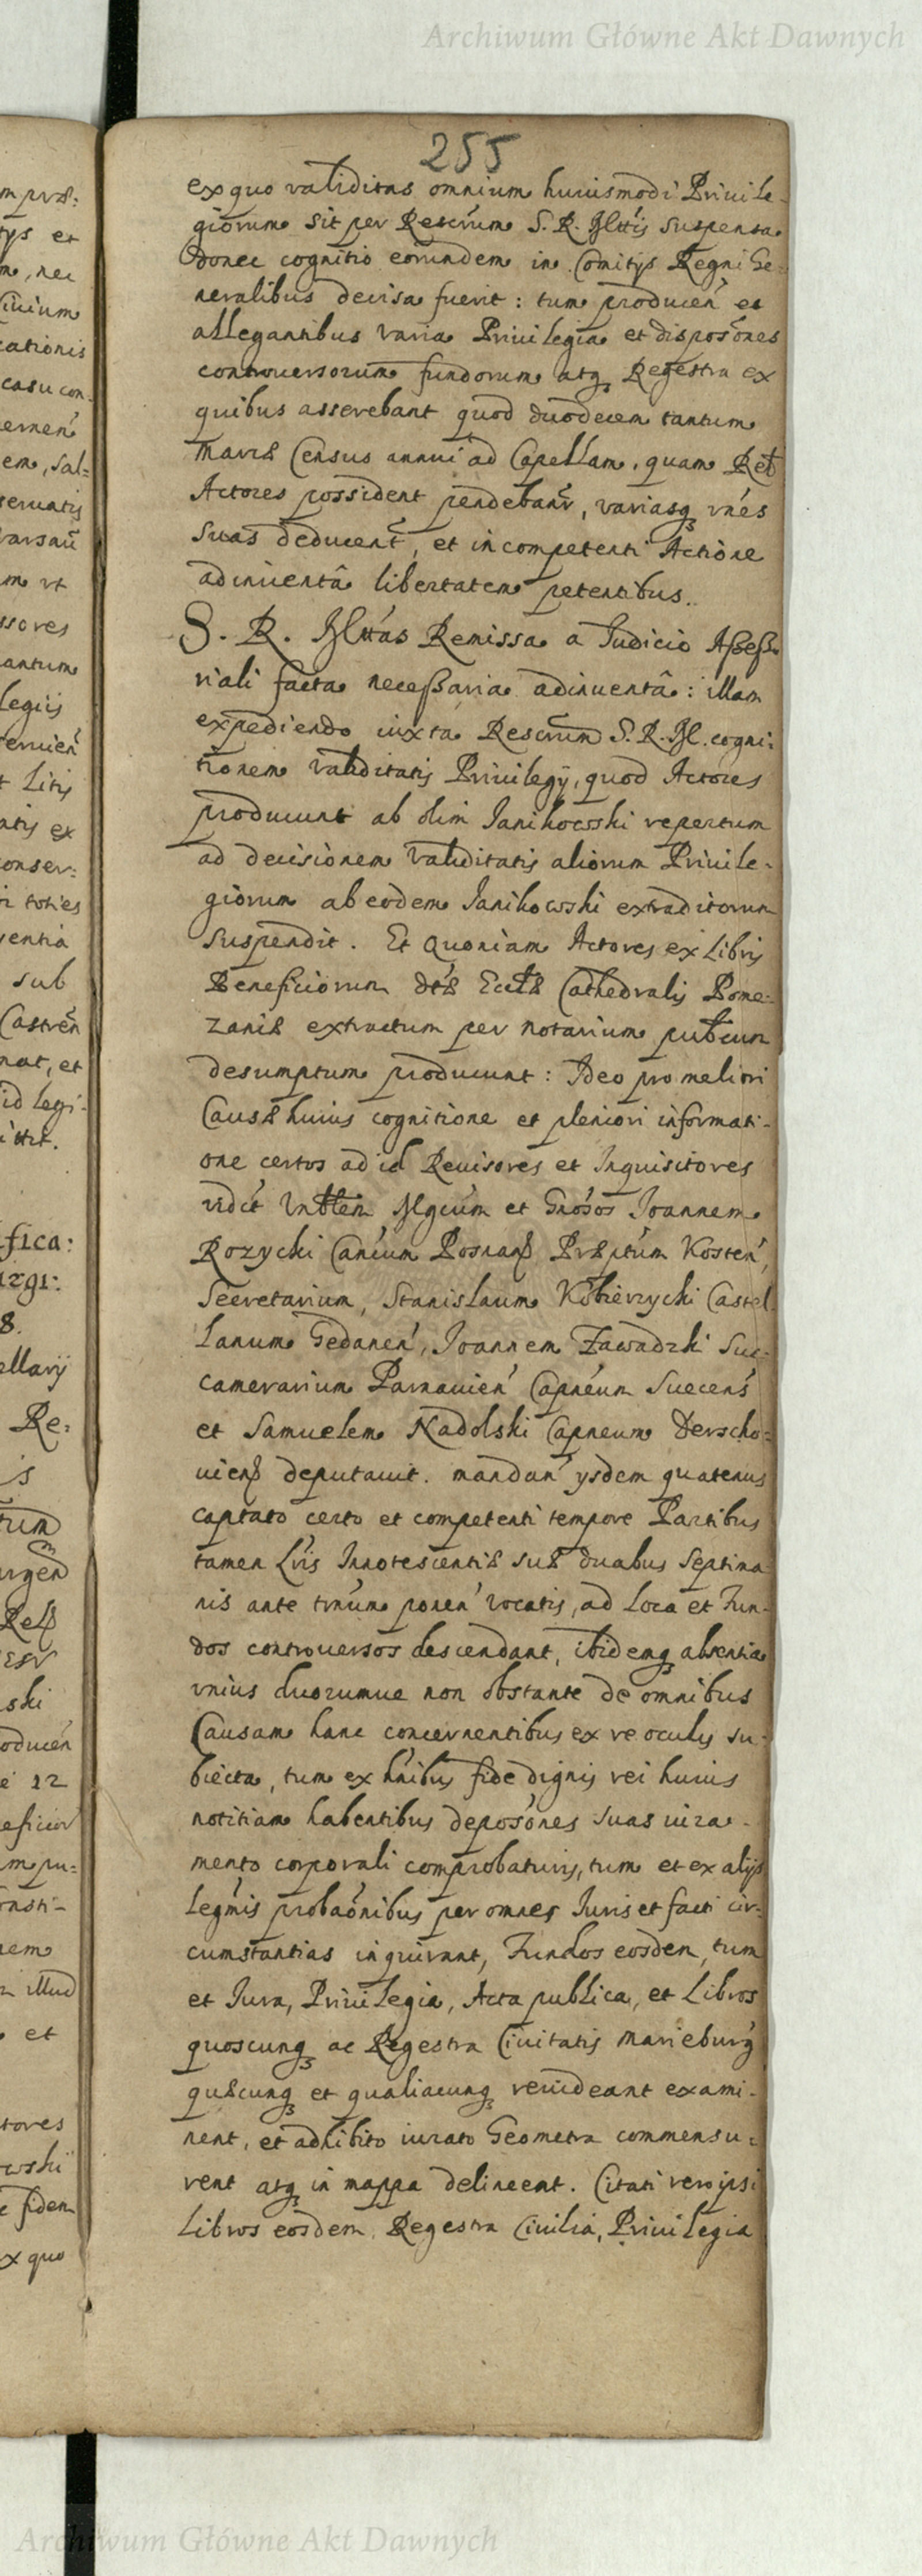 Archiwum Główne Akt Dawnych
255
ex quo validitas omnium huiusmodi Priuile-
giorum sit per Rescrūm S. R. Mttis suspensa
donec cognitio eorundem in Comitys Regni Ge-
neralibus decisa fuerit: tum producen̄ et
allegantibus varia Priuilegia et disposōnes
controuersorum fundorum atq Regestra ex
quibus asserebant quod duodecem tantum
Marcæ Census annui ad Capellam, quam Ret
Actores possident pendebanr̄, variasq rnés
suas deducent̄, et incompetenti Actione
adinuentâ libertatem petentibus.
S. R. Mttás Remissa a Iudicio Aßeß
riali facta neceßaria adinuentâ: illam
expediendo iuxta Rescrūm S. R. M. cogni:
tionem validitatis Priuilegÿ, quod Actores
producunt ab olim Janikowski repertum
ad decisionem validitatis aliorum Priuile-
giorum ab eodem Janikowski extraditorum
suspendit. Et quoniam Actores ex Libris
Beneficiorum dtæ Ecctæ Cathedralis Pome-
zaniæ extractum per notarium pubcum
desumptum producunt: Ideo pro meliori
Causæ huius cognitione et pleniori informati-
one certos ad id Reuisores et Inquisitores
vidct Vnbtem Mgcúm et Gnósos Joannem
Rozycki Canćum Posnanß Præptúm Kosten̄,
Secretarium, Stanislaum Kobierzycki Castel-
lanum Gedanen̄, Joannem Zawadzki Suc-
camerarium Parnauien̄ Capnéum Suecens̄
et Samuelem Nadolski Capneum Derscho-
uienß deputauit. mandan̄ ysdem quatenus
captato certo et competenti tempore Partibus
tamen Lŕis Innotescentiæ suæ duabus Septima
nis ante tmúm ponen̄ vocatis, ad Loca et Fun-
dos controuersos descendant, ibidemq absentia
vnius duorumue non obstante de omnibus
Causam hanc concernentibus ex re oculis su-
biecta, tum ex hńibus fide dignis rei huius
notitiam habentibus deposónes suas iura-
mento corporali comprobaturis, tum et ex alijs
legmís probaónibus per omnes Iuris et facti cir-
cumstantias inquirant, Fundos eosdem, tum
et Iura, Priuilegia, Acta publica, et Libros
quoscunq ac Regestra Ciuitatis Marieburḡ
quæcunq et qualiacunq reuideant exami-
nent, et adhibito iurato Geometra commensu-
rent atq in mappa delineent. Citati vero ipsi
Libros eosdem, Regestra Ciuilia, Priuilegia
Archiwum Główne Akt Dawnych